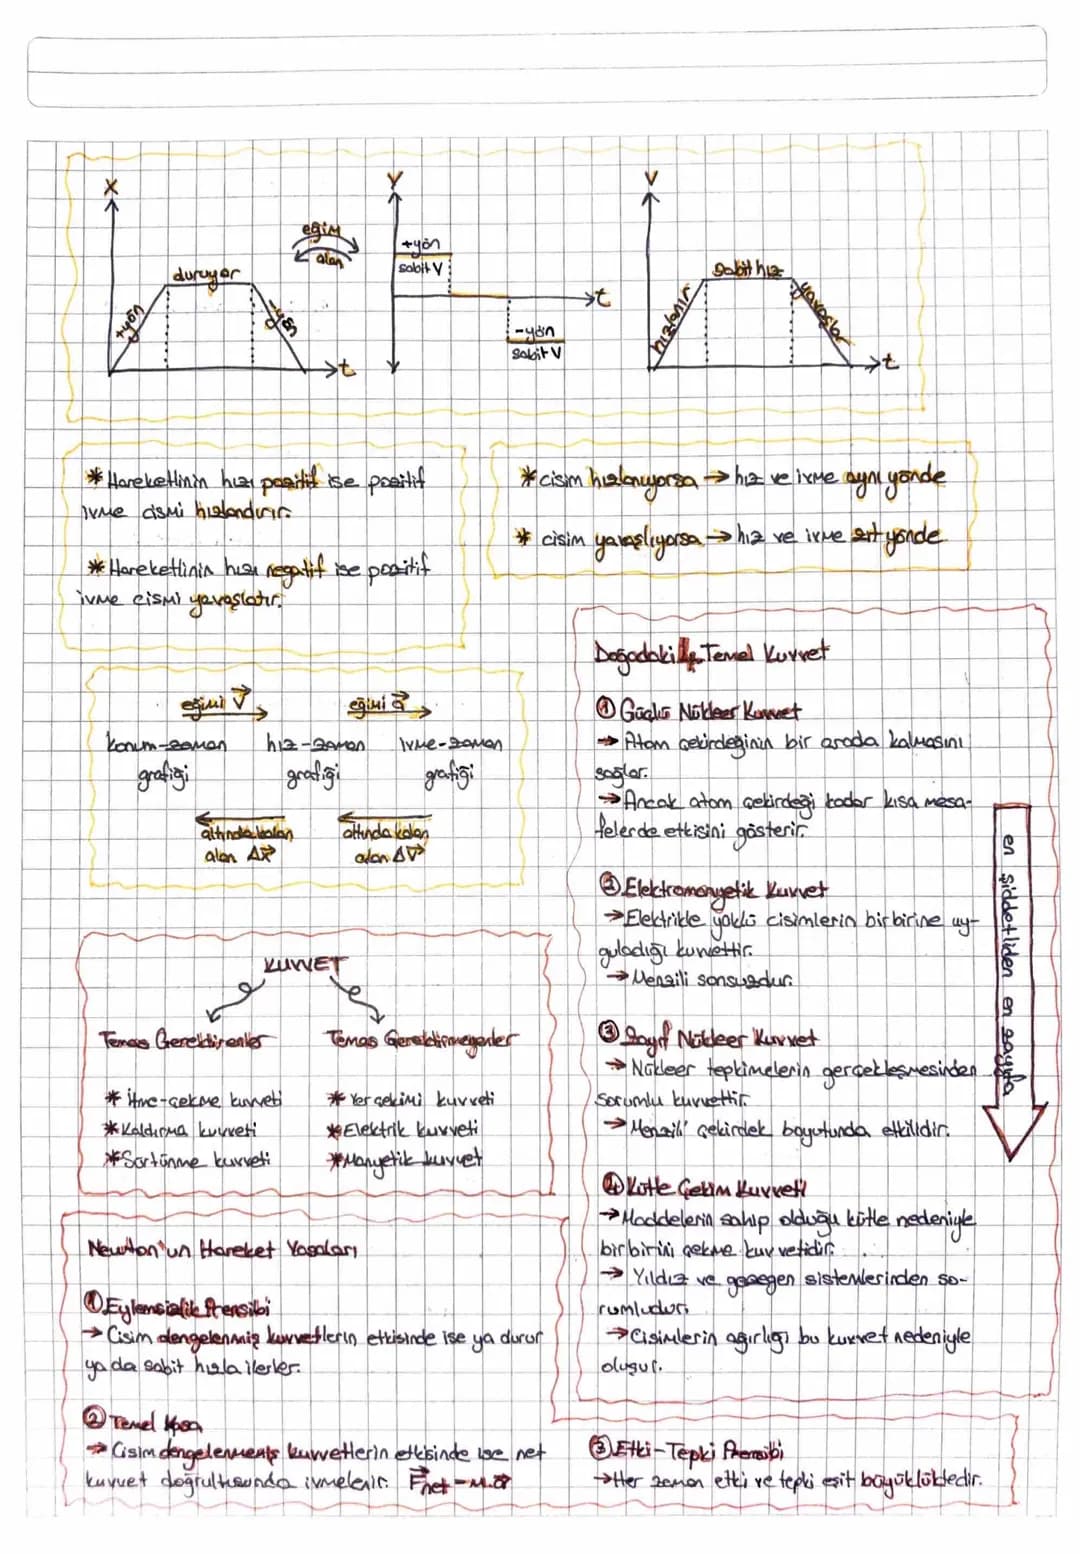 X
eğim
alan
+yön
duruyor
-yön
t
V
+yön
sabit V
-yön
sabit V
t
V
hızlanır
Sabit hız
yavaşlar
t
* Hareketlinin hızı pozitif ise pozitif
ivme cismi hızlandırır.
* Hareketlinin hızı negatif ise pozitif
ivme cismi yavaşlatır.
* cisim hızlanıyorsa → hız ve ivme aynı yönde
* cisim yavaşlıyorsa → hız ve ivme zıt yönde
eğimi V
eğimi a
konum-zaman hız-zaman ivme-zaman
grafiği grafiği grafiği
altında kalan altında kalan
alan ΔX alan ΔV
KUVVET
Temas Gerektirenler Temas Gerektirmeyenler
* İtme-çekme kuvveti * Yer çekimi kuvveti
* Kaldırma kuvveti * Elektrik kuvveti
* Sürtünme kuvveti * Manyetik kuvvet
Newton'un Hareket Yasaları
① Eylemsizlik Prensibi
→ Cisim dengelenmiş kuvvetlerin etkisinde ise ya durur
ya da sabit hızla ilerler.
② Temel Yasa
→ Cisim dengelenmemiş kuvvetlerin etkisinde ise net
kuvvet doğrultusunda ivmelenir. Fnet = m.a
Doğadaki 4 Temel Kuvvet
① Güçlü Nükleer Kuvvet
→ Atom çekirdeğinin bir arada kalmasını
sağlar.
→ Ancak atom çekirdeği kadar kısa mesa-
felerde etkisini gösterir.
② Elektromanyetik Kuvvet
→ Elektrikle yüklü cisimlerin birbirine uy-
guladığı kuvvettir.
→ Menzili sonsuzdur.
③ Zayıf Nükleer Kuvvet
→ Nükleer tepkimelerin gerçekleşmesinden
sorumlu kuvvettir.
→ Menzili çekirdek boyutunda etkilidir.
④ Kütle Çekim Kuvveti
→ Maddelerin sahip olduğu kütle nedeniyle
birbirini çekme kuvvetidir.
→ Yıldız ve gezegen sistemlerinden so-
rumludur.
→ Cisimlerin ağırlığı bu kuvvet nedeniyle
oluşur.
en şiddetliden en zayıfa
③ Etki-Tepki Prensibi
→ Her zaman etki ve tepki eşit büyüklüktedir.